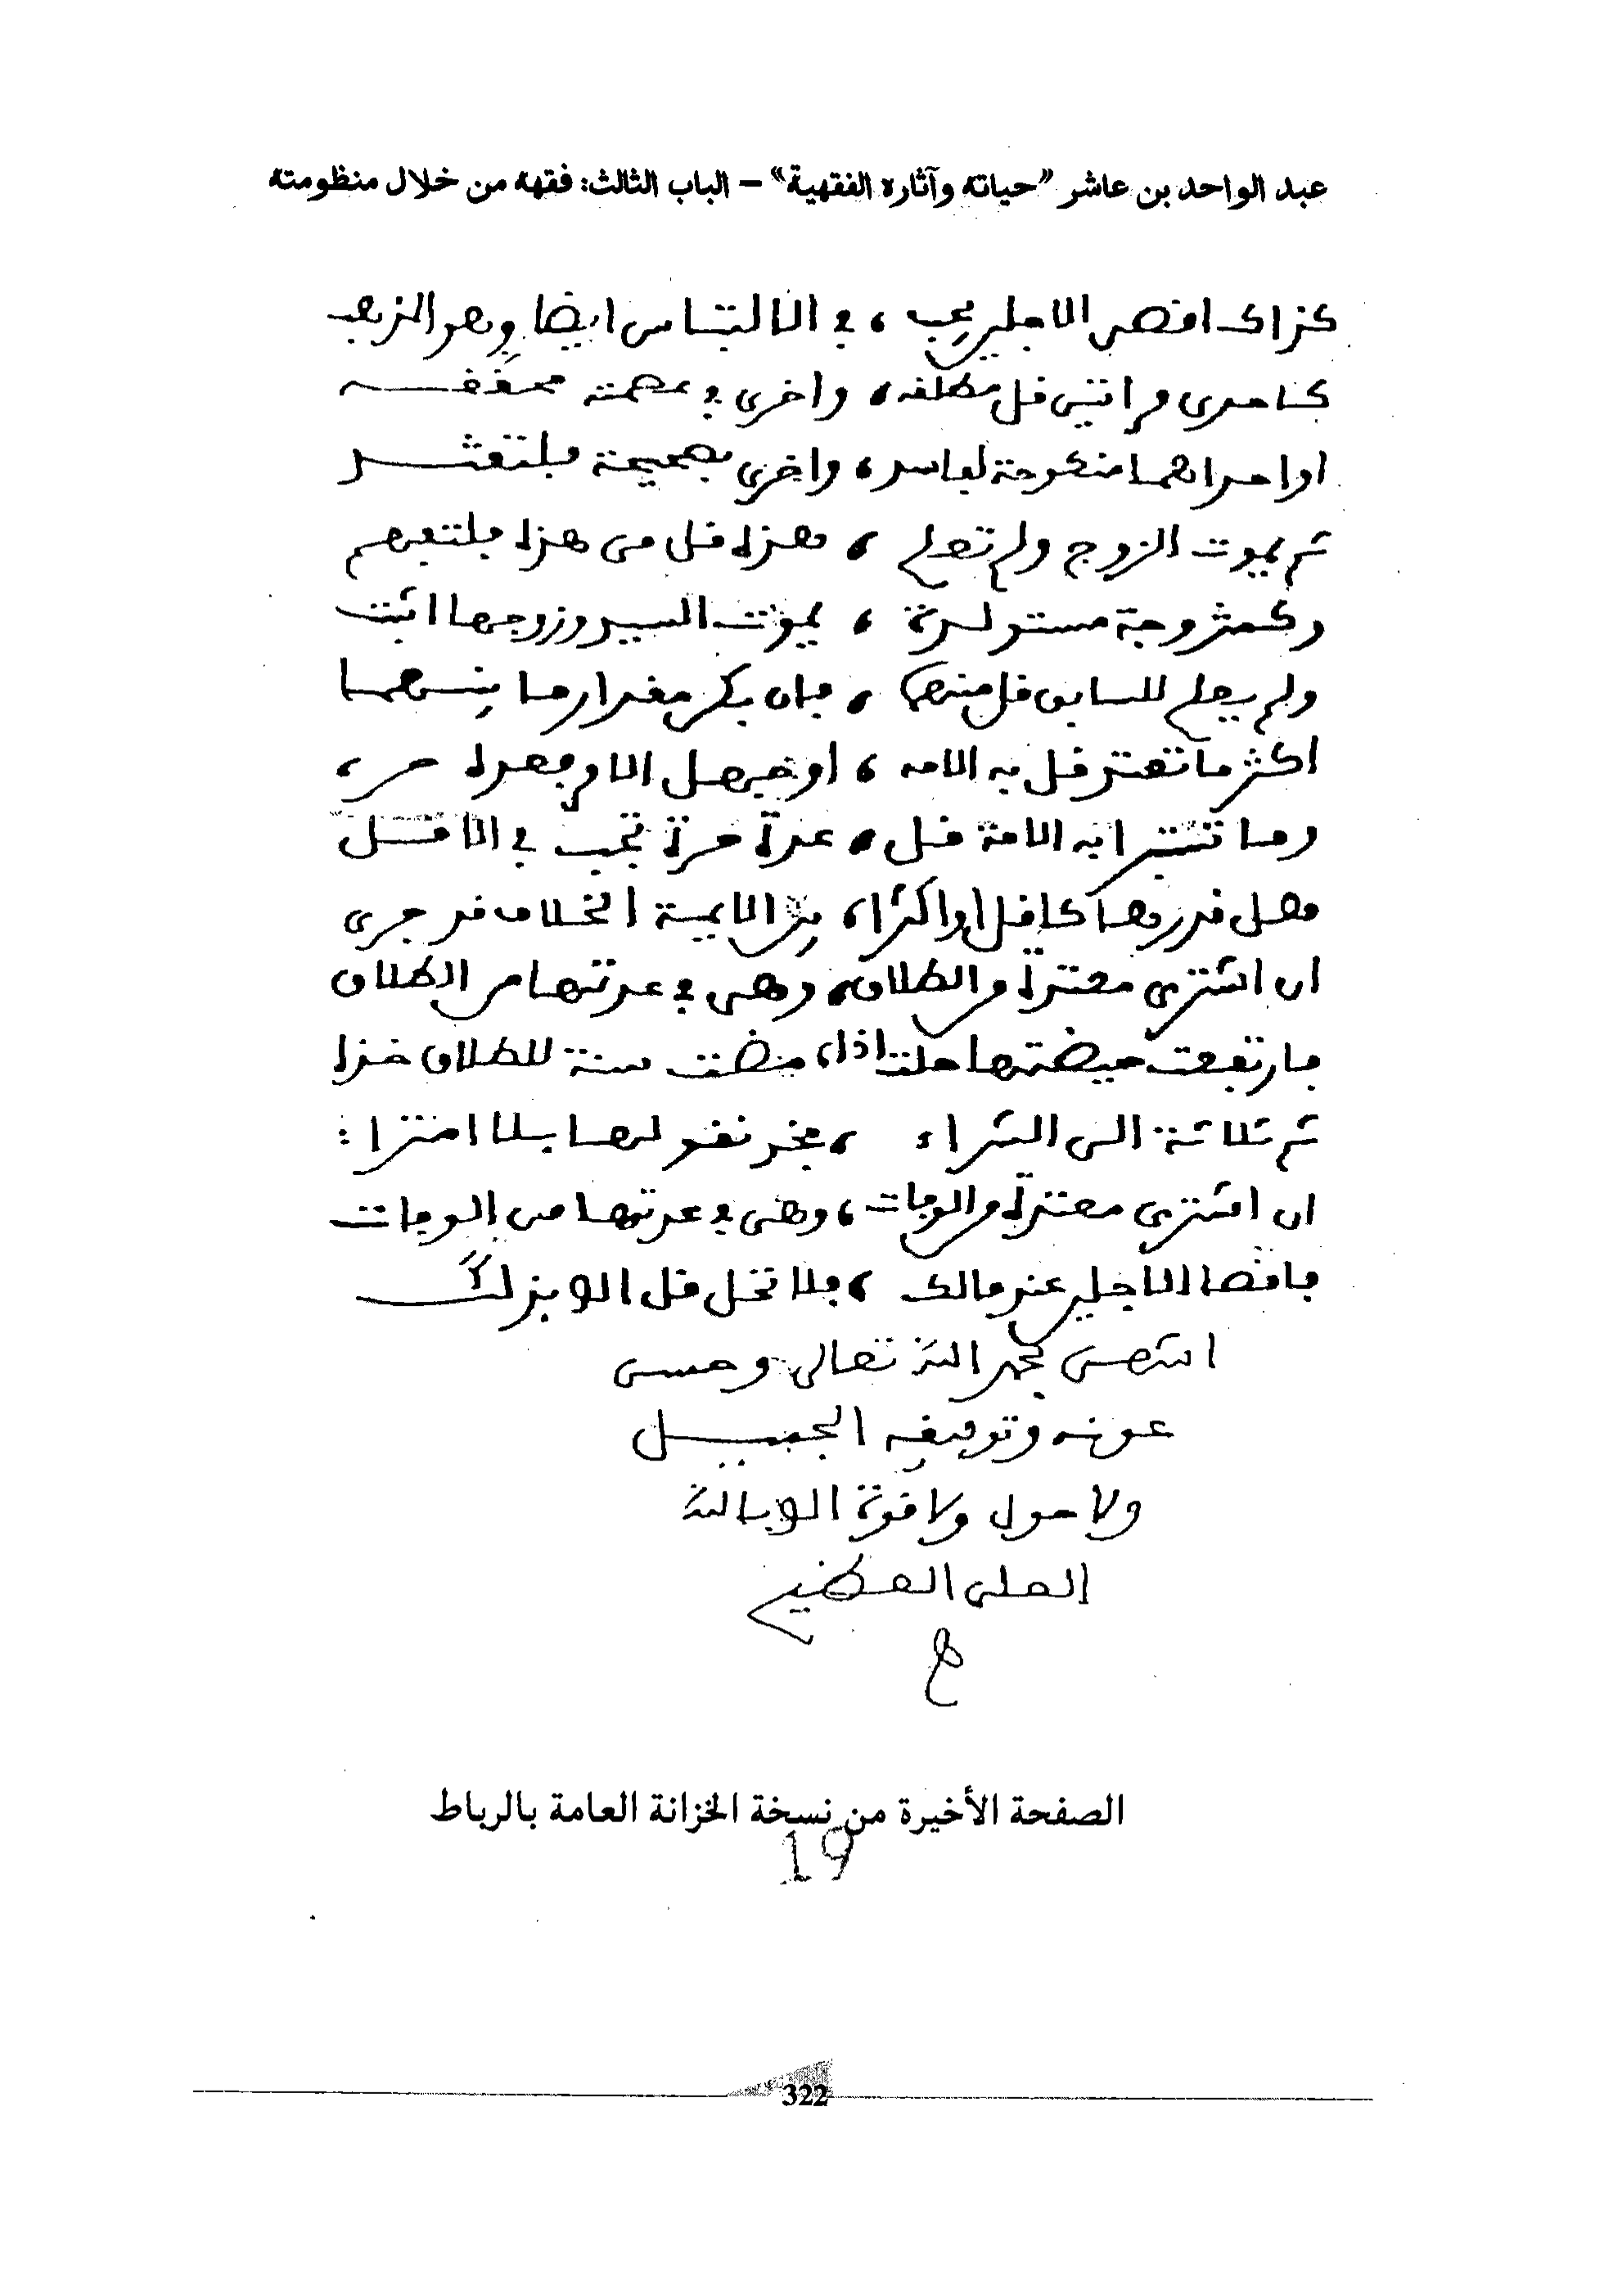 عبد الواحد بن عاشر "حياته وآثاره الفقهية" – الباب الثالث: فقهه من خلال منظومته
كذاك اقصى الاجلين يجب ، في الالتباس ايضا وهو المذهب
كاحدى من اثنتين قل مطلقه ، واخرى في عصمة محققـــه
او احداهما منكوحة بفاسد ، واخرى بصحيحة فلتعتـــد
ثم يموت الزوج ولم تعلم ، فهذه قل من هذه فلتفهم
وكمتزوجة مستولدة ، يموت السيد وزوجها اثبت
ولم يعلم للسابق قل منهما ، فان يكن مقدار ما بينــهما
اكثر ما تعتد قل به الامه ، او جهل الامر فعدة حــر ،
وما تستبرا به الامة قــل ، عدة حرة تجب في الاقــل
وهل قدرها كاقل او اكثرا ، بين الايمة الخلاف قد جرى
ان اشترى معتدة من الطلاق ، وهى في عدتها من الطلاق
فارتفعت حيضتها حلت اذا ، مضت سنة للطلاق خذا
ثم ثلاثة الى الشراء ، فخذ نقولها بلا امترا :
ان اشترى معتدة من الوفات ، وهى في عدتها من الوفات
فاقصا الاجلين عند مالك ، فلا تحل قل الا بذلــك
انتهى بحمد الله تعالى وحسن
عونه وتوفيقه الجميـــل
ولا حول ولا قوة الا بالله
العلى العظيم
الصفحة الأخيرة من نسخة الخزانة العامة بالرباط
19
322